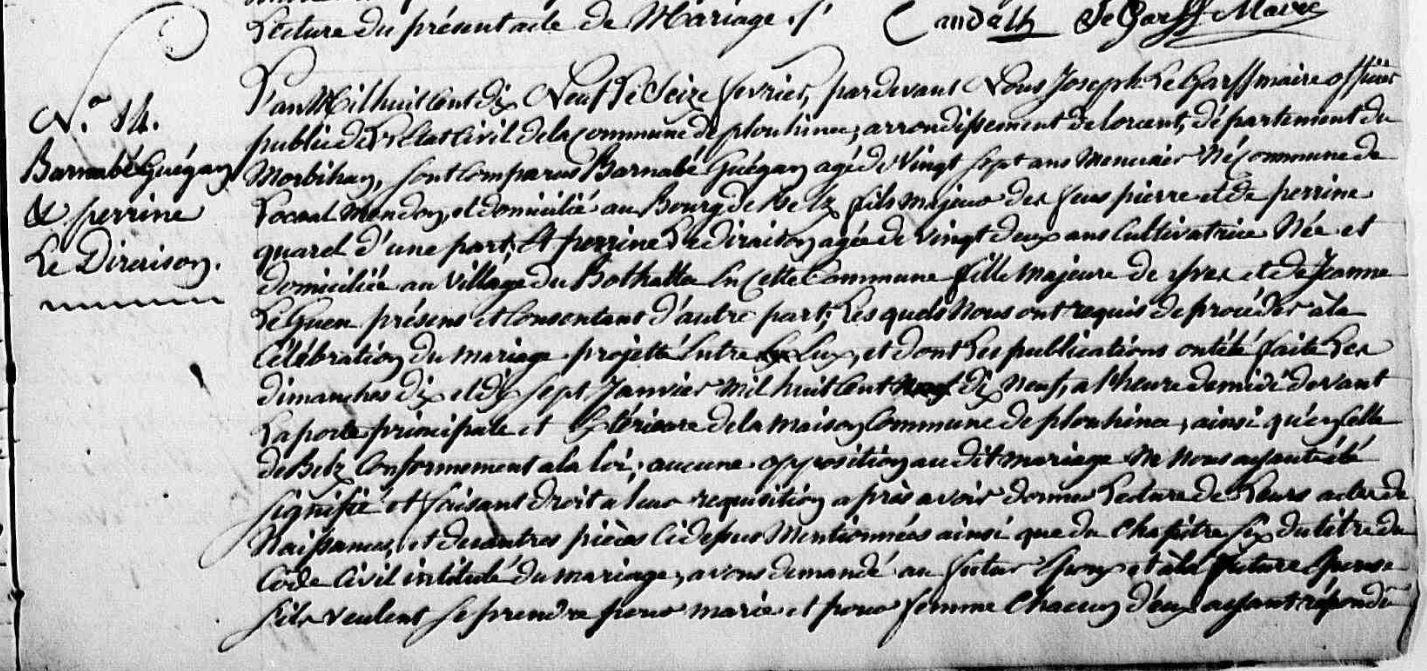 Lecture du présent acte de Mariage ./.
Candalh Le Garff Maire
N.° 14.
Barnabé Guégan
& perrine
Le Diraison.
L'an Mil huit Cent dix Neuf Le Seize fevrier, pardevant Nous Joseph Le Garff maire officier
public de L'Etat Civil de la Commune de plouhinec, arrondissement de lorient, département du
Morbihan, sont Comparus Barnabé Guégan agé de Vingt sept ans Menuisier Né Commune de
Locoal Mendon, et domicilié au Bourg de Belz fils Majeur des feus pierre et de perrine
quarel d'une part, Et perrine Le diraison agée de Vingt deux ans Cultivatrice Née et
domiciliée au Village du Bothalla En Cette Commune fille Majeure de yves et de Jeanne
Le Guen présens et Consentant d'autre part; Les quels Nous ont requis de procéder à la
Célébration du mariage projetté Entre Eux, et dont Les publications ont été faite Les
dimanches dix et dix sept Janvier Mil huit Cent dix Neuf, a l'heure de midi devant
La porte principale et Extérieure de la Maison Commune de plouhinec, ainsi qu'en Celle
de Belz Conformement a la loi; aucune opposition au dit mariage Ne Nous ayant été
signifié et faisant droit a leur requisition après avoir donné Lecture de Leurs actes de
Naissances, et des autres pièces Ci dessus Mentionnées ainsi que du Chapitre six du titre du
Code Civil intitulé du mariage, avons demandé au futur Epoux et à la future Epouse
s'ils veulent se prendre pour mari et pour femme Chacun d'eux ayant répondu